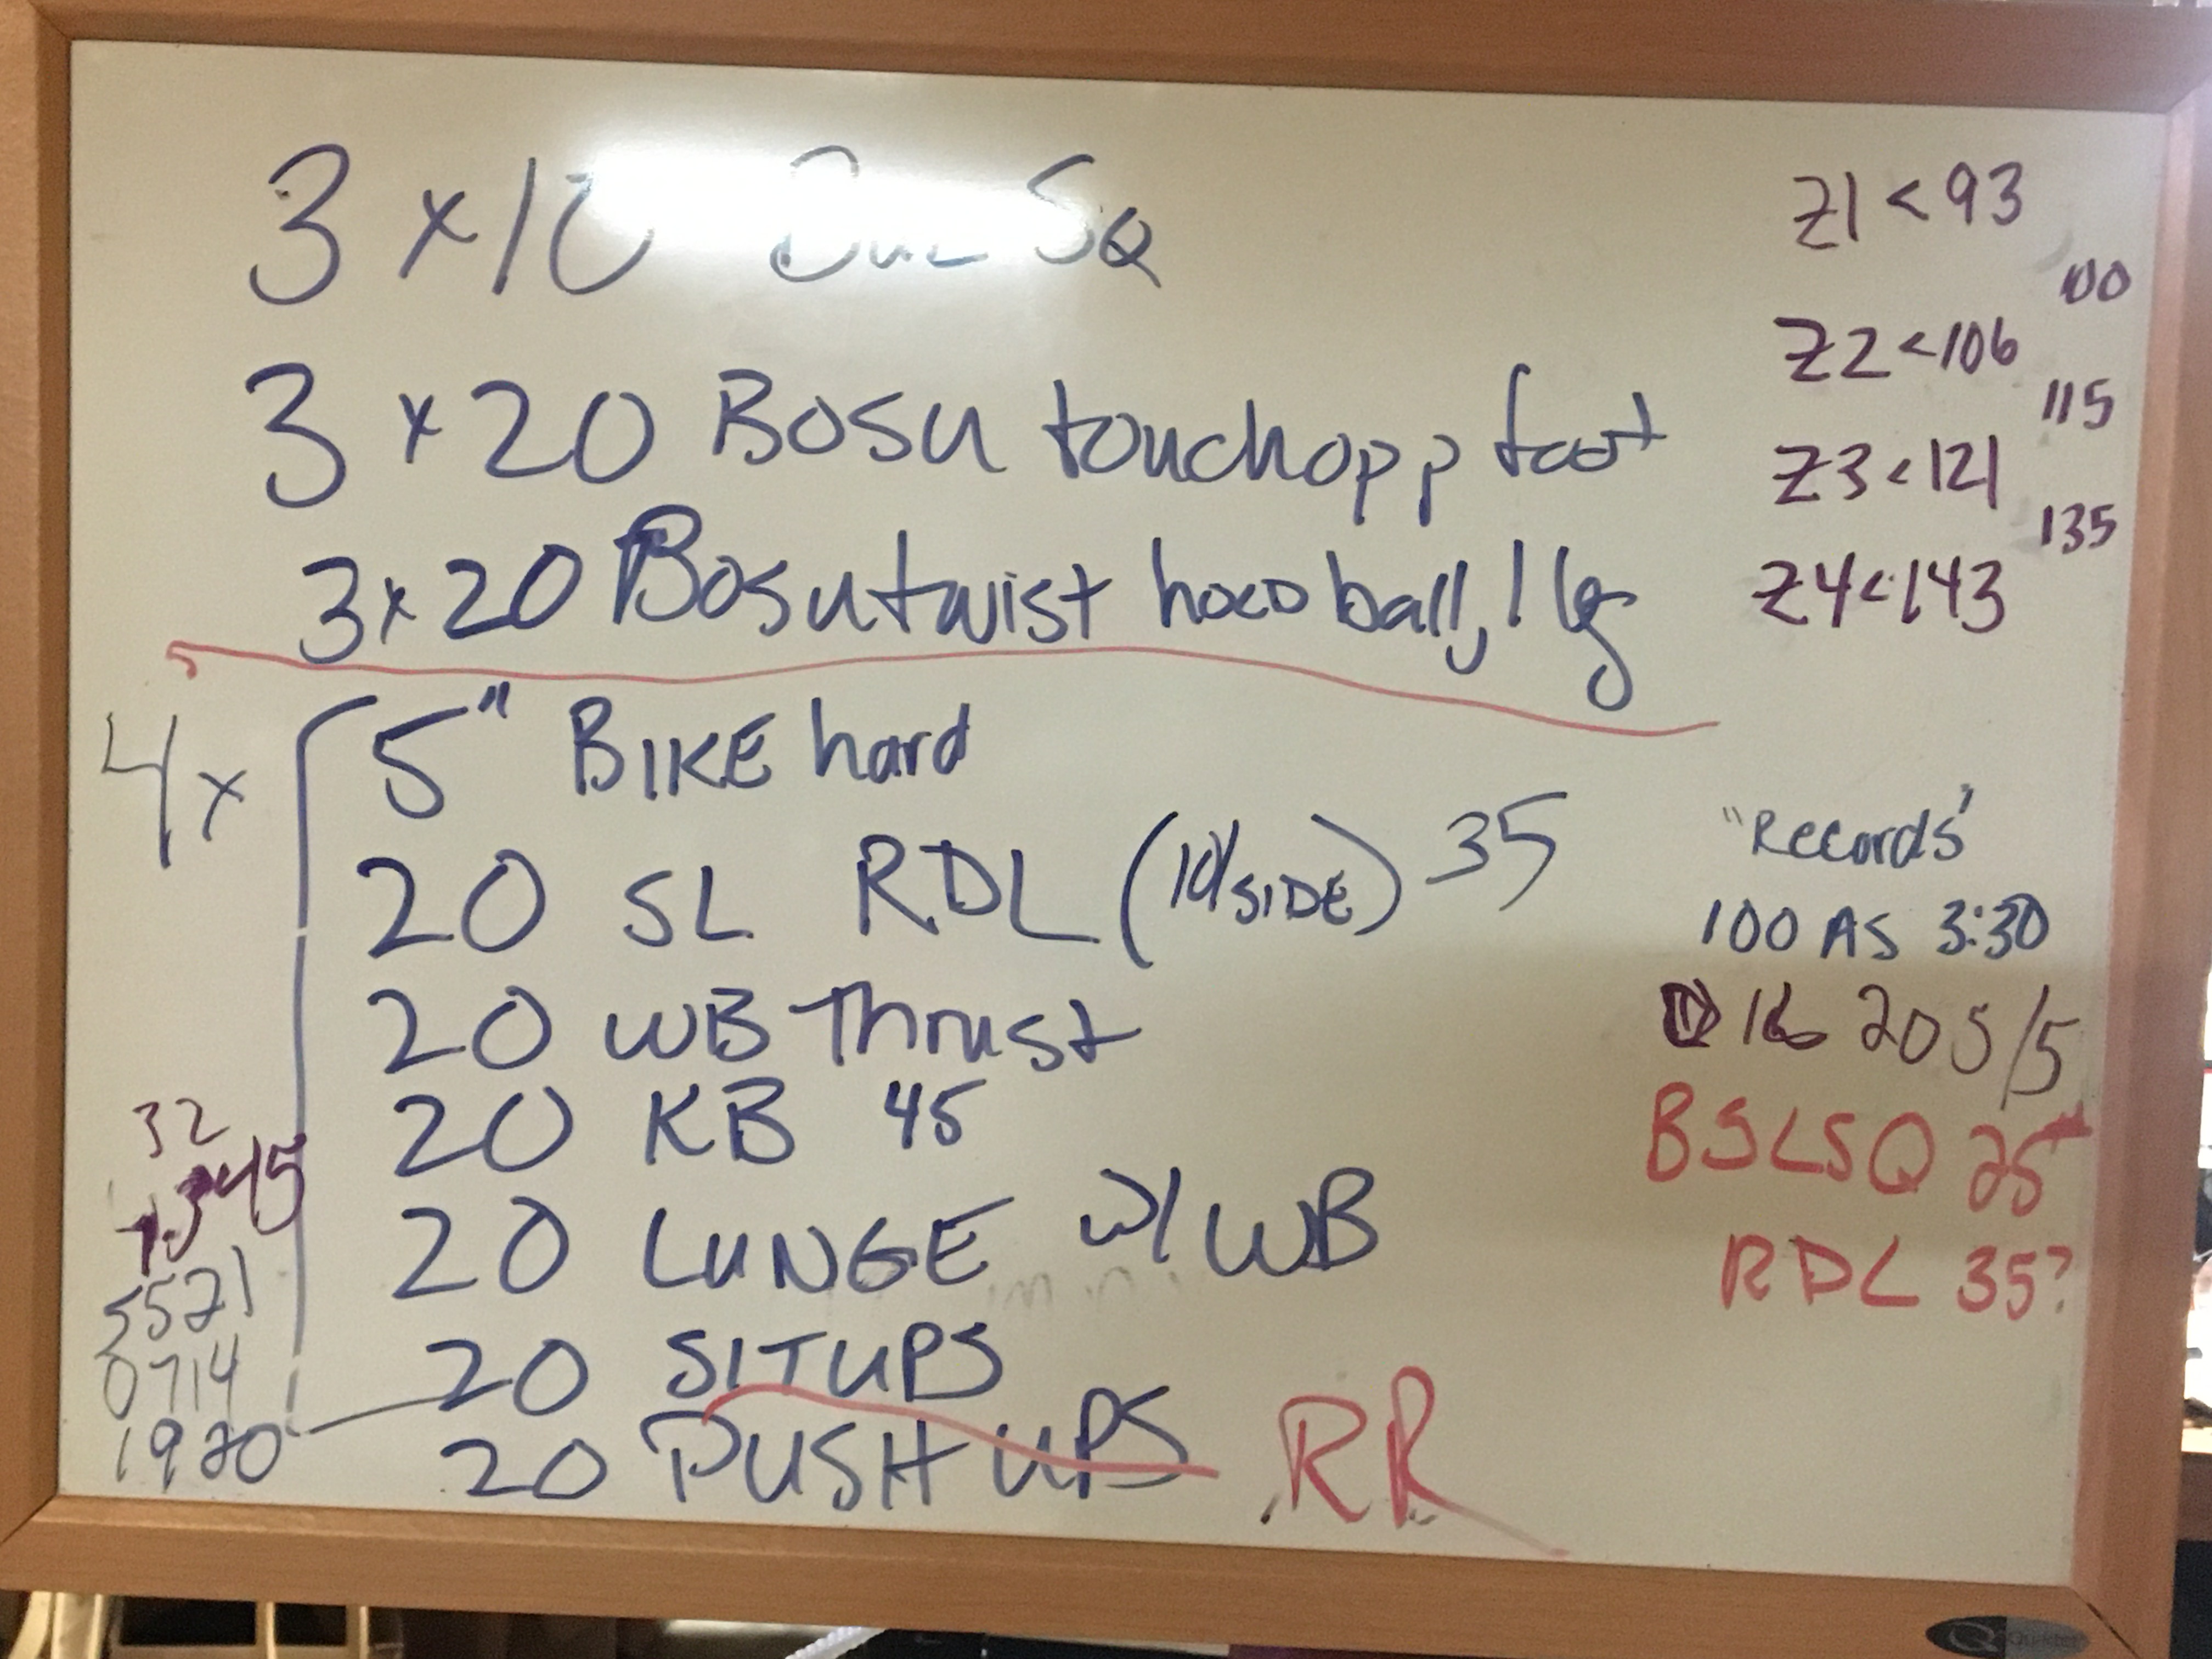 3 x 10 SQ
3 x 20 BOSU touch opp foot
3 x 20 Bosu twist hoco ball, 1 lg
4x
5" BIKE hard
20 SL RDL (10/SIDE) 35
20 WB Thrust
20 KB 45
20 LUNGE w/ WB
20 SITUPS
20 PUSH UPS RR
32
45
5521
0714
1920
Z1 < 93
100
Z2 < 106
115
Z3 < 121
135
Z4 < 143
"Records"
100 AS 3:30
205/5
BSLSQ 25
RDL 35?
Quartet